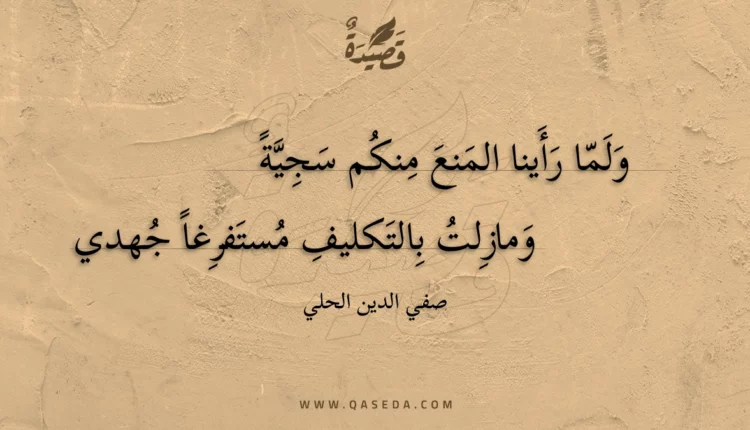 قَصِيْدَةٌ
وَلَمّا رَأَينا المَنعَ مِنكُم سَجِيَّةً
وَمازِلتُ بِالتَكليفِ مُستَفرِغاً جُهدي
صفي الدين الحلي
WWW.QASEDA.COM